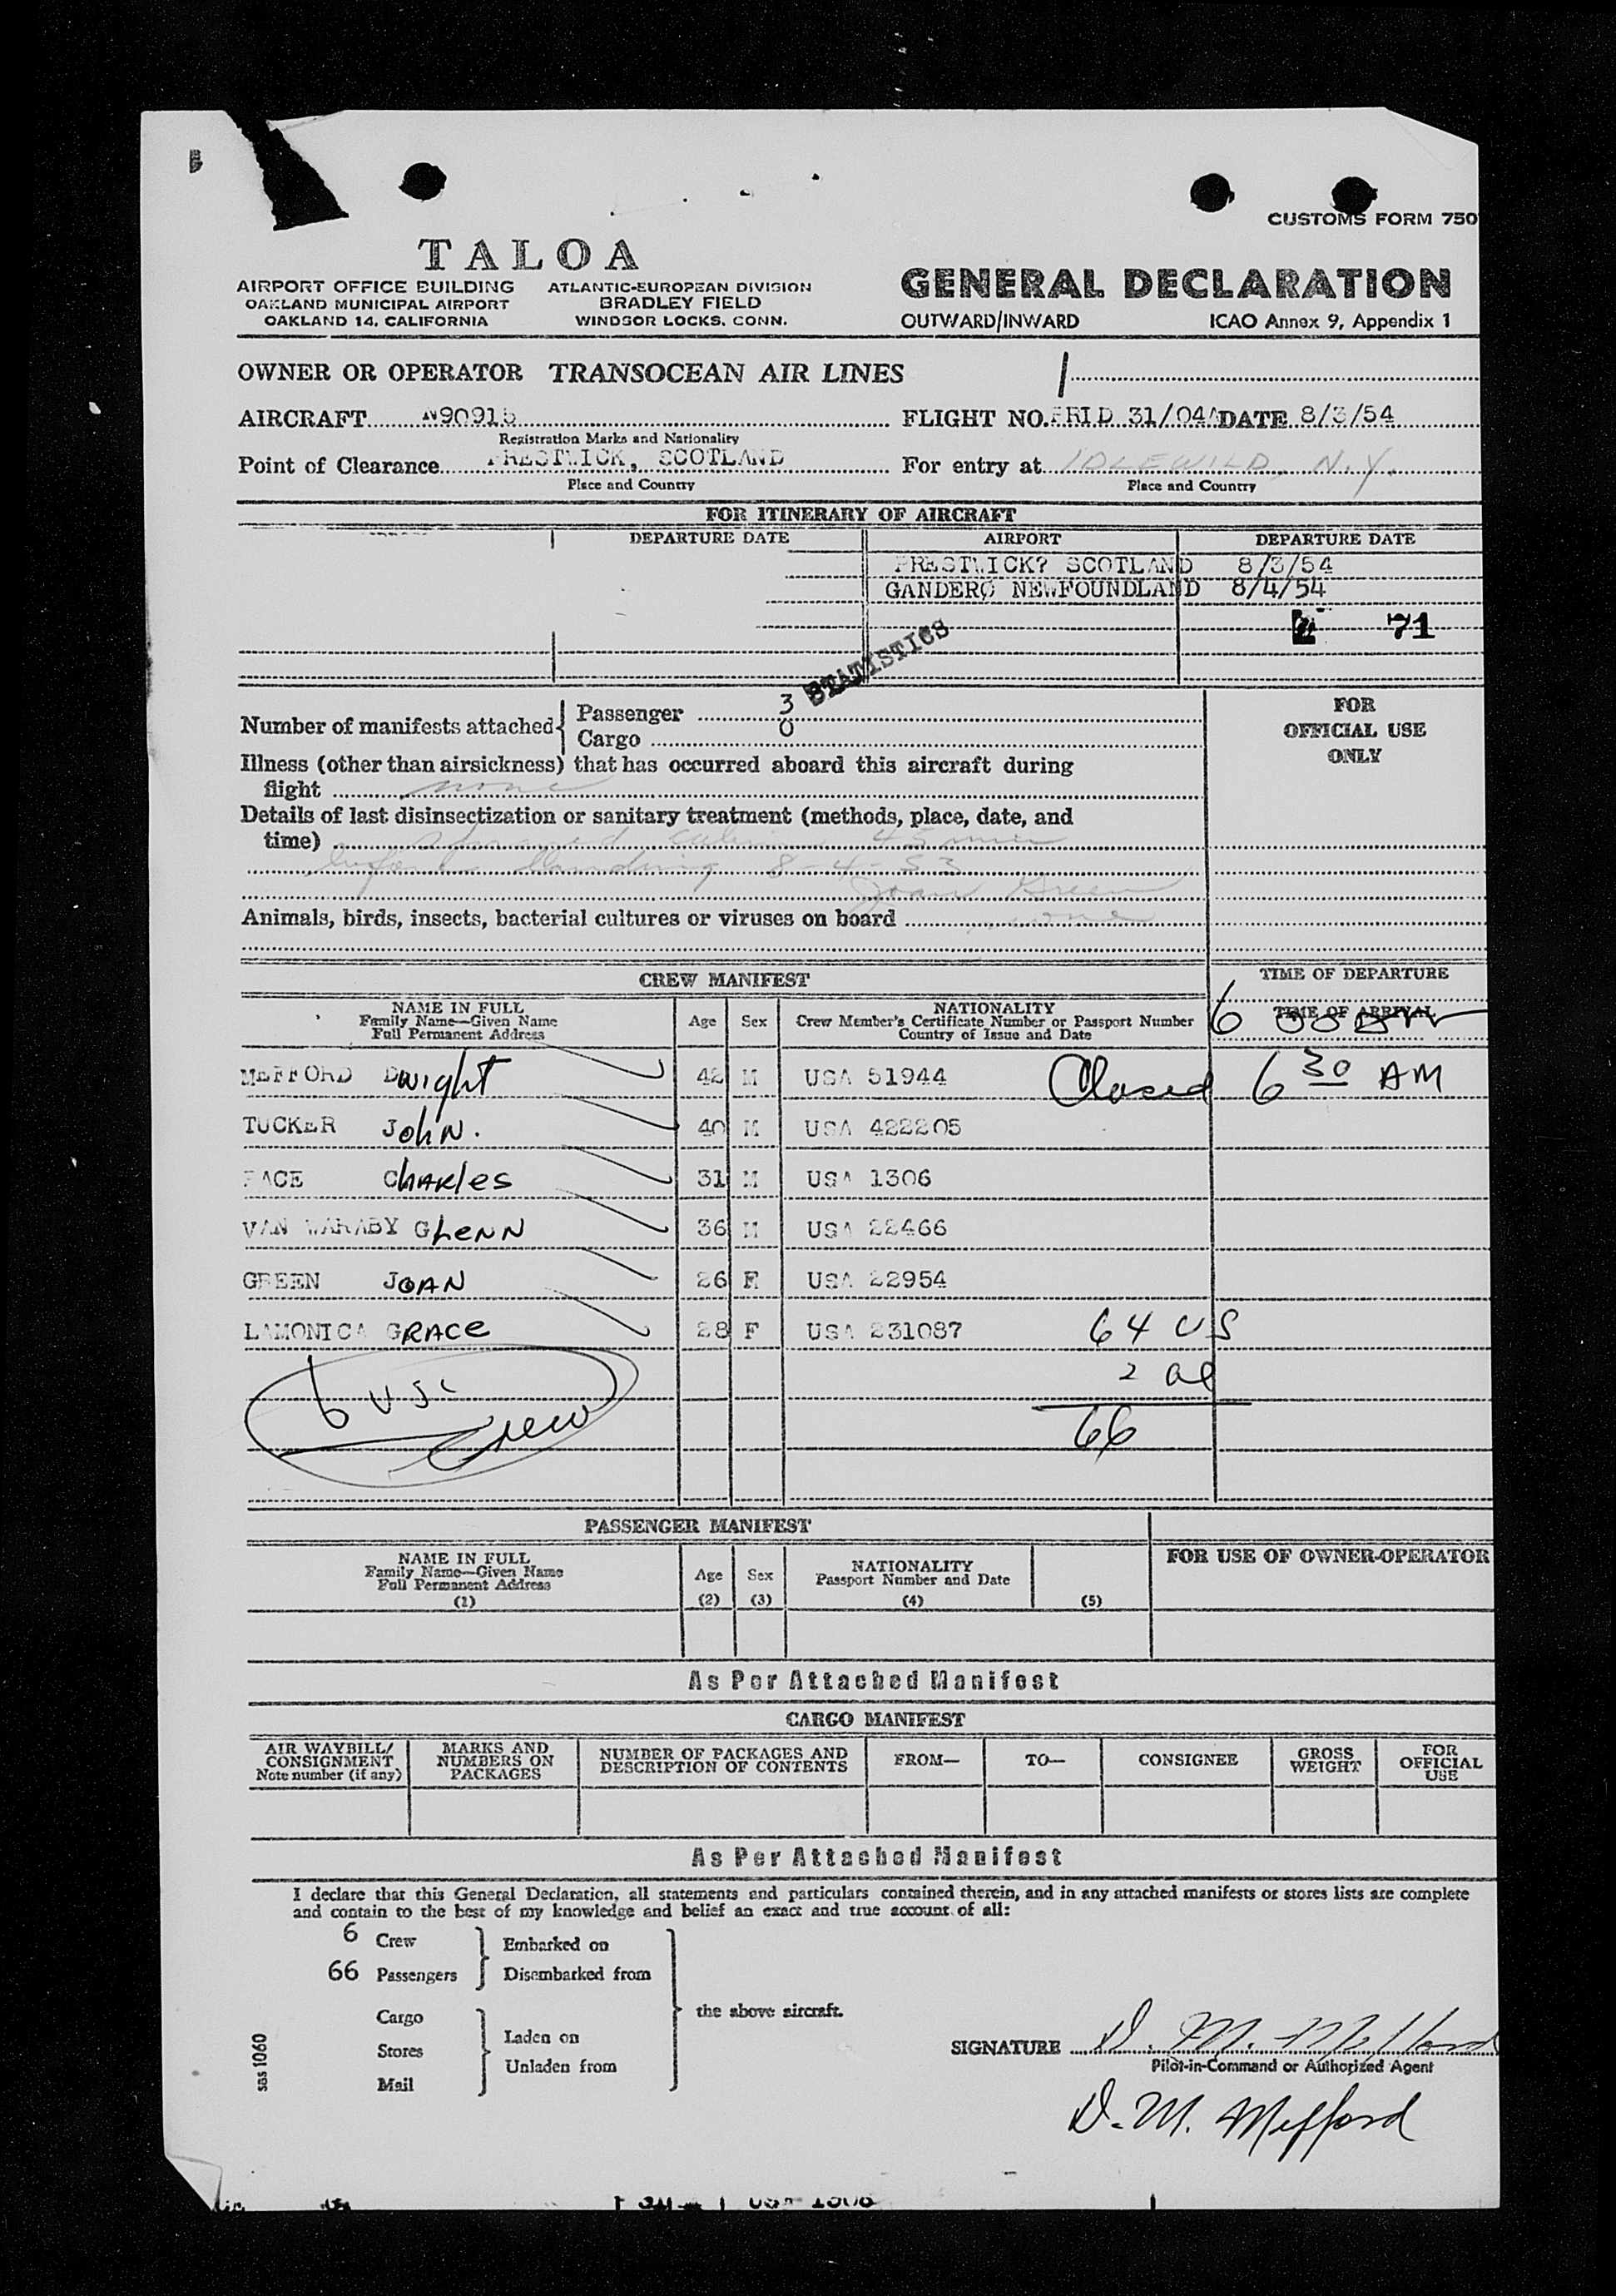 CUSTOMS FORM 750
TALOA
AIRPORT OFFICE BUILDING
OAKLAND MUNICIPAL AIRPORT
OAKLAND 14, CALIFORNIA
ATLANTIC-EUROPEAN DIVISION
BRADLEY FIELD
WINDSOR LOCKS, CONN.
GENERAL DECLARATION
OUTWARD/INWARD ICAO Annex 9, Appendix 1
OWNER OR OPERATOR TRANSOCEAN AIR LINES
AIRCRAFT N90915 FLIGHT NO. PRID 31/04A DATE 8/3/54
Registration Marks and Nationality
Point of Clearance PRESTWICK, SCOTLAND For entry at IDLEWILD, N.Y.
Place and Country Place and Country
FOR ITINERARY OF AIRCRAFT
DEPARTURE DATE AIRPORT DEPARTURE DATE
PRESTWICK? SCOTLAND 8/3/54
GANDERØ NEWFOUNDLAND 8/4/54
71
STATISTICS
Number of manifests attached
Passenger 3
Cargo 0
FOR
OFFICIAL USE
ONLY
Illness (other than airsickness) that has occurred aboard this aircraft during
flight none
Details of last disinsectization or sanitary treatment (methods, place, date, and
time) cabin 45 min
before landing 8-4-53
Joan Green
Animals, birds, insects, bacterial cultures or viruses on board none
CREW MANIFEST
TIME OF DEPARTURE
TIME OF ARRIVAL
6
NAME IN FULL
Family Name—Given Name
Full Permanent Address
Age Sex
NATIONALITY
Crew Member's Certificate Number or Passport Number
Country of Issue and Date
MEFFORD Dwight 42 M USA 51944 Closed 6 30 AM
TUCKER JohN. 40 M USA 422205
PACE ChARles 31 M USA 1306
VAN WARABY GLeNN 36 M USA 22466
GREEN JOAN 26 F USA 22954
LAMONICA GRACe 28 F USA 231087
64 US
2 al
66
6 USC
Crew
PASSENGER MANIFEST
NAME IN FULL
Family Name—Given Name
Full Permanent Address
(1)
Age
(2)
Sex
(3)
NATIONALITY
Passport Number and Date
(4)
(5)
FOR USE OF OWNER-OPERATOR
As Per Attached Manifest
CARGO MANIFEST
AIR WAYBILL/
CONSIGNMENT
Note number (if any)
MARKS AND
NUMBERS ON
PACKAGES
NUMBER OF PACKAGES AND
DESCRIPTION OF CONTENTS
FROM—
TO—
CONSIGNEE
GROSS
WEIGHT
FOR
OFFICIAL
USE
As Per Attached Manifest
I declare that this General Declaration, all statements and particulars contained therein, and in any attached manifests or stores lists are complete
and contain to the best of my knowledge and belief an exact and true account of all:
6 Crew
66 Passengers
Embarked on
Disembarked from
Cargo
Stores
Mail
Laden on
Unladen from
the above aircraft.
SIGNATURE D. M. Mefford
Pilot-in-Command or Authorized Agent
D. M. Mefford
SBS 1060
USA 1306